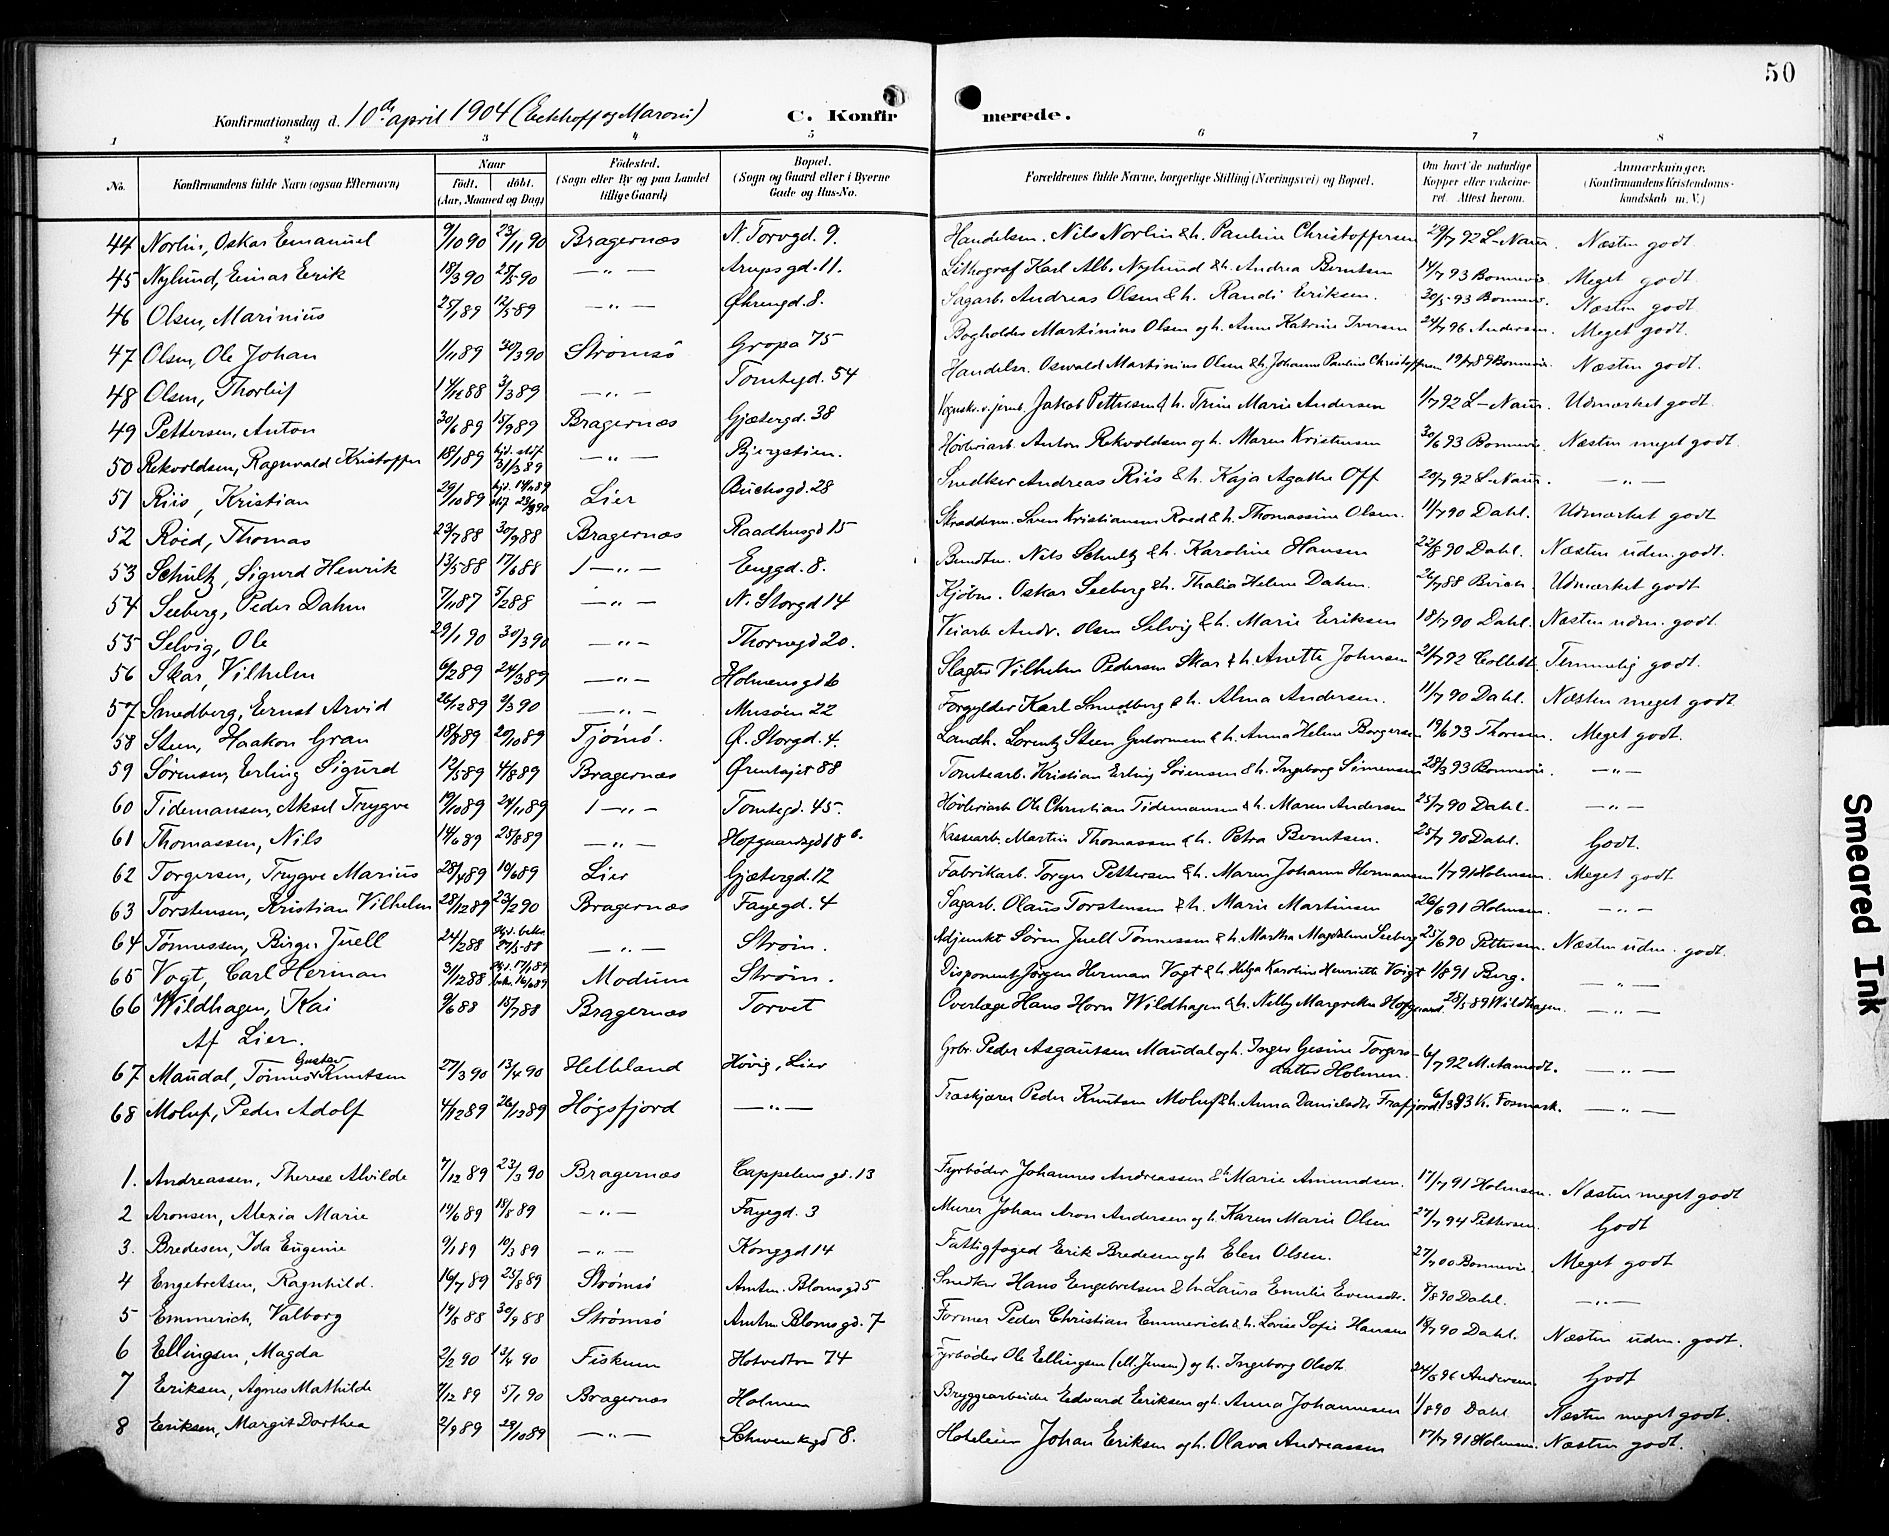 50
Konfirmationsdag d. 10de april 1904 (Eckhoff og Maroni) C. Konfirmerede.
1 2 3 4 5 6 7 8
No. Konfirmandens fulde Navn (ogsaa Efternavn) Naar Født. døbt. (Aar, Maaned og Dag) Fødested. (Sogn eller By og paa Landet tillige Gaard) Bopæl. (Sogn og Gaard eller i Byerne Gade og Hus-No. Forældrenes fulde Navne, borgerlige Stilling (Næringsvei) og Bopæl. Om havt de naturlige Kopper eller vakcineret. Attest herom. Anmærkninger. (Konfirmandens Kristendomskundskab m. V.)
44 Norlin, Oskar Emanuel 9/10 90 23/11 90 Bragernæs N. Torvgd. 9. Handelsm. Nils Norlin & h. Pauline Christoffersen 29/7 92 L-Naur. Næsten godt
45 Nylund, Einar Eerik 18/3 90 25/5 90 —"— Arupsgd. 11. Lithograf Karl Alb. Nylund & h. Andrea Berntsen 14/7 93 Bonnevie Meget godt
46 Olsen, Marinius 25/1 89 12/5 89 —"— Øhrengd. 8. Sagarb. Andreas Olsen & h. Randi Eriksen. 30/5 93 Bonnev. Næsten godt
47 Olsen, Ole Johan 1/11 89 30/3 90 Strømsø Gropa 75 Bogholder Martinius Olsen og h. Anne Katrine Iversen 24/7 96 Andersen. Meget godt.
48 Olsen, Thorleif 14/12 88 3/3 89 —"— Tomtegd. 54 Handelsr. Oswald Martinius Olsen & h. Johanne Pauline Christoffersen 19/7 89 Bonnevie. Næsten godt.
49 Pettersen, Anton 30/6 89 15/9 89 Bragernæs Gjætergd. 38 Vognskr. v. jernb. Jakob Pettersen & h. Trine Marie Andersen 1/7 92 L-Naur. Udmærket godt
50 Rekvoldsen, Ragnvald Kristoffer 18/1 89 hjd. stif. 31/3 89 —"— Bjergstien. Høvleriarb. Anton Rekvoldsen og h. Maren Kristensen 30/6 93 Bonnevie Næsten meget godt
51 Riis, Kristian 29/10 89 Lier Buchsgd. 28 Snedker Andreas Riis & h. Kaja Agathe Off 20/7 92 L-Naur. —"—
52 Röed, Thomas 23/7 88 30/9 88 Bragernæs Raadhusgd 15 Skræderm. Sven Kristiansen Roed & h. Thomassine Olsen. 11/7 90 Dahl. Udmærket godt
53 Schultz, Sigurd Henrik 13/5 88 17/6 88 —"— Enggd. 8. Bundtm. Nils Schultz & h. Karoline Hansen 22/8 90 Dahl. Næsten udm. godt.
54 Seeberg, Peder Dahm 7/11 87 5/2 88 —"— N. Storgd 14 Kjöbm. Oskar Seeberg & h. Thalia Helene Dahm. 26/7 88 Birch. Udmærket godt
55 Selvig, Ole 29/1 90 30/3 90 —"— Thornegd 20. Veiarb. Andr. Olsen Selvig & h. Marie Eriksen 18/7 90 Dahl. Næsten udm. godt.
56 Skar, Vilhelm 6/2 89 24/3 89 —"— Holmensgd 6 Slagter Vilhelm Pedersen Skar & h. Anette Johnsen 21/7 92 Collett. Temmelig godt.
57 Smedberg, Ernst Arvid 26/12 89 2/3 90 —"— Musöen 22 Forgylder Karl Smedberg & h. Alma Andersen. 11/7 90 Dahl. Næsten meget godt
58 Steen, Haakon Gran 18/8 89 20/10 89 Tjömö. Ø. Storgd. 4. Landh. Lorentz Steen Gulormsen & h. Anna Helene Borgersen 19/6 93 Thoresen. Meget godt.
59 Sørensen, Erling Sigurd 12/5 89 4/8 89 Bragernæs Ørentajet 88 Tomtearb. Kristian Erling Sørensen & h. Ingeborg Simensen 28/3 93 Bonnevie. —"—
60 Tidemansen, Aksel Trygve 19/10 89 24/11 89 —"— Tomtegd. 45. Høvleriarb Ole Christian Tidemansen & h. Maren Andersen 25/7 90 Dahl. —"—
61 Thomassen, Nils 14/6 89 25/8 89 —"— Hofgaardsgd 18 b. Martin Thomassen & h. Petra Berntsen. 25/7 90 Dahl. Godt.
62 Torgersen, Trygve Marius 28/4 89 10/6 89 Lier Gjætergd. 12 Fabrikarb. Torger Pettersen & h. Maren Johanne Hermansen 1/7 91 Holmsen. Meget godt
63 Torstensen, Kristian Vilhelm 28/12 89 23/2 90 Bragernæs Fayegd. 4 Sagarb. Olaus Torstensen & h. Marie Martinsen 26/6 91 Holmsen. —"—
64 Tönnessen, Birger Juell 24/2 88 —"— Strøm. Adjunkt Sören Juell Tönnessen & h. Martha Magdalene Seeberg 25/6 90 Pettersen. Næsten udm. godt.
65 Vogt, Carl Herman 31/12 88 Modum Strøm. Disponent Jørgen Herman Vogt & h. Helga Karoline Henriette Voigt 1/8 91 Berg. —"—
66 Wildhagen, Kai 9/6 88 15/7 88 Bragernæs Torvet Overlæge Hans Horn Wildhagen & h. Nelly Margrethe Hofgaard 25/5 89 Wildhagen. —"—
Af Lier.
67 Maudal, Tønnes Gustav Knutsen 27/3 90 13/4 90 Helleland Høvig, Lier Grbr. Peder Asgautsen Maudal og h. Inger Gesine Torgersdatter Holmen. 6/7 92 M. Aamodt. —"—
68 Moluf, Peder Adolf 4/12 89 26/12 89 Högsfjord —"— Træskjærer Peder Knutsen Moluf & h. Anna Danielsdtr Frafjord 6/3 93 K. Fosmark. —"—
1. Andreassen, Therese Alvilde 7/12 89 23/3 90 Bragernæs Cappelensgd. 13 Fyrböder Johannes Andreassen & h. Marie Amundsen. 17/7 91 Holmsen. Næsten meget godt
2 Aronsen, Alexia Marie 19/6 89 18/8 89 —"— Fayegd. 3 Murer Johan Aron Andersen og h. Karen Marie Olsen 27/7 94 Pettersen. Godt
3. Bredesen, Ida Eugenie 9/1 89 10/3 89 —"— Konggd 14 Fattigfoged Erik Bredesen og h. Elen Olsen. 27/7 00 Bonnevie Meget godt
4 Engebretsen, Ragnhild. 16/7 89 25/8 89 Strømsö Amtm. Blomsgd 5 Snedker Hans Engebretsen & h. Laura Emilie Evensdtr. 8/8 90 Dahl. —"—
5 Emmerich, Valborg 14/8 88 30/9 88 Strømsö Amtm. Blomsgd. 7 Former Peder Christian Emmerich & h. Lovise Sofie Hansen 18/7 90 Dahl. Næsten udm. godt.
6 Ellingsen, Magda 2/2 90 13/4 90 Fiskum Hotvedtvn 74 Fyrbøder Ole Ellingsen (M. Jensen) og h. Ingeborg Olsdtr 24/8 96 Andersen. Godt
7 Eriksen, Agnes Mathilde 7/12 89 5/1 90 Bragernæs Holmen Bryggearbeider Edvard Eriksen og h. Anna Johannesen 1/8 90 Dahl Næsten meget godt.
8 Eriksen, Margit Dorthea 2/9 89 20/10 89 —"— Schwenkegd 8. Johan Eriksen og h. Olava Andreassen 17/7 91 Holmsen. Næsten godt.
Smeared Ink